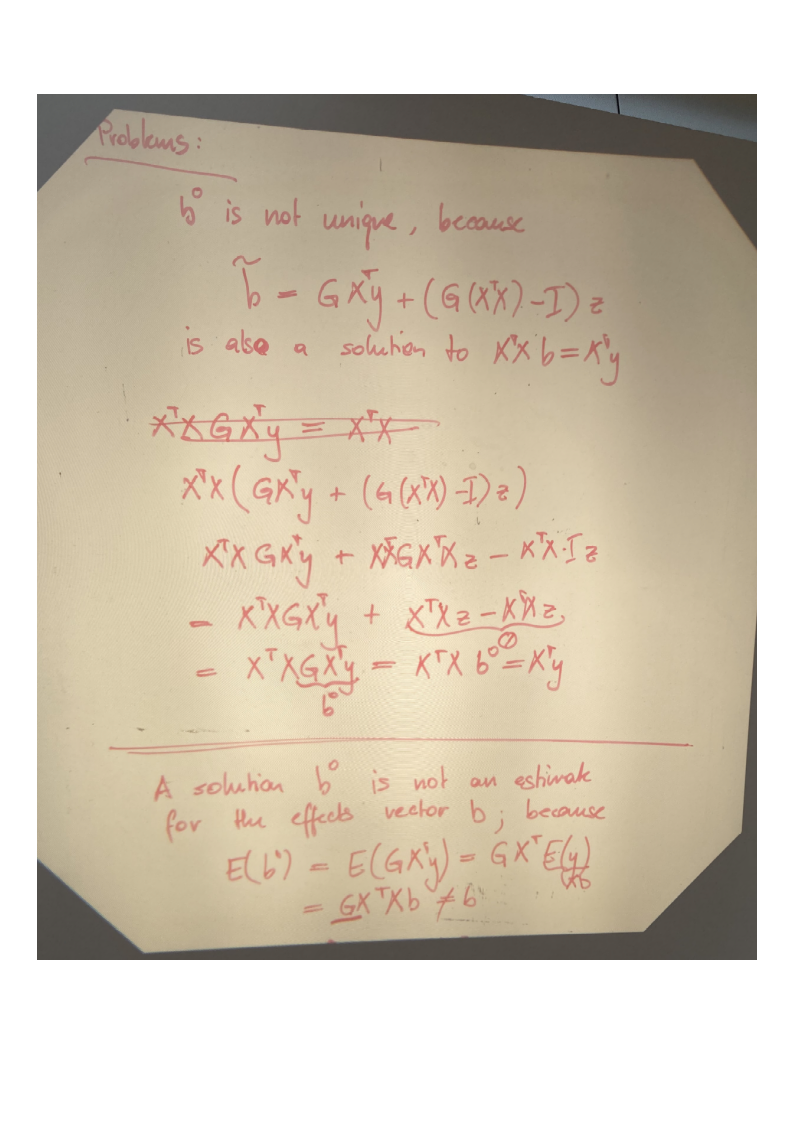 Problems:
b° is not unique, because
b̃ = GXᵀy + (G(XᵀX) - I) z
is also a solution to XᵀX b = Xᵀy
XᵀX GXᵀy = XᵀX
XᵀX (GXᵀy + (G(XᵀX) - I) z)
XᵀX GXᵀy + XᵀXGXᵀX z - XᵀX·I z
= XᵀXGXᵀy + XᵀX z - XᵀX z
0
= XᵀXGXᵀy = XᵀX b° = Xᵀy
b°
A solution b° is not an estimate
for the effects vector b; because
E(b°) = E(GXᵀy) = GXᵀE(y)
Xb
= GXᵀXb ≠ b